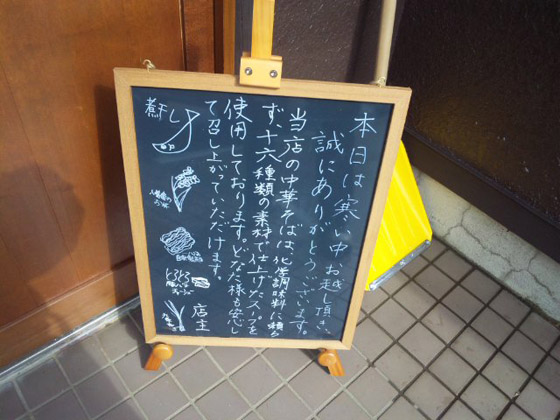 本日は寒い中お越し頂き、
誠にありがとうございます。
当店の中華そばは、化学調味料に頼ら
ず、十六種類の素材で仕上げたスープを
使用しております。どなた様も安心し
て召し上がっていただけます。
店主
煮干し
とろとろ